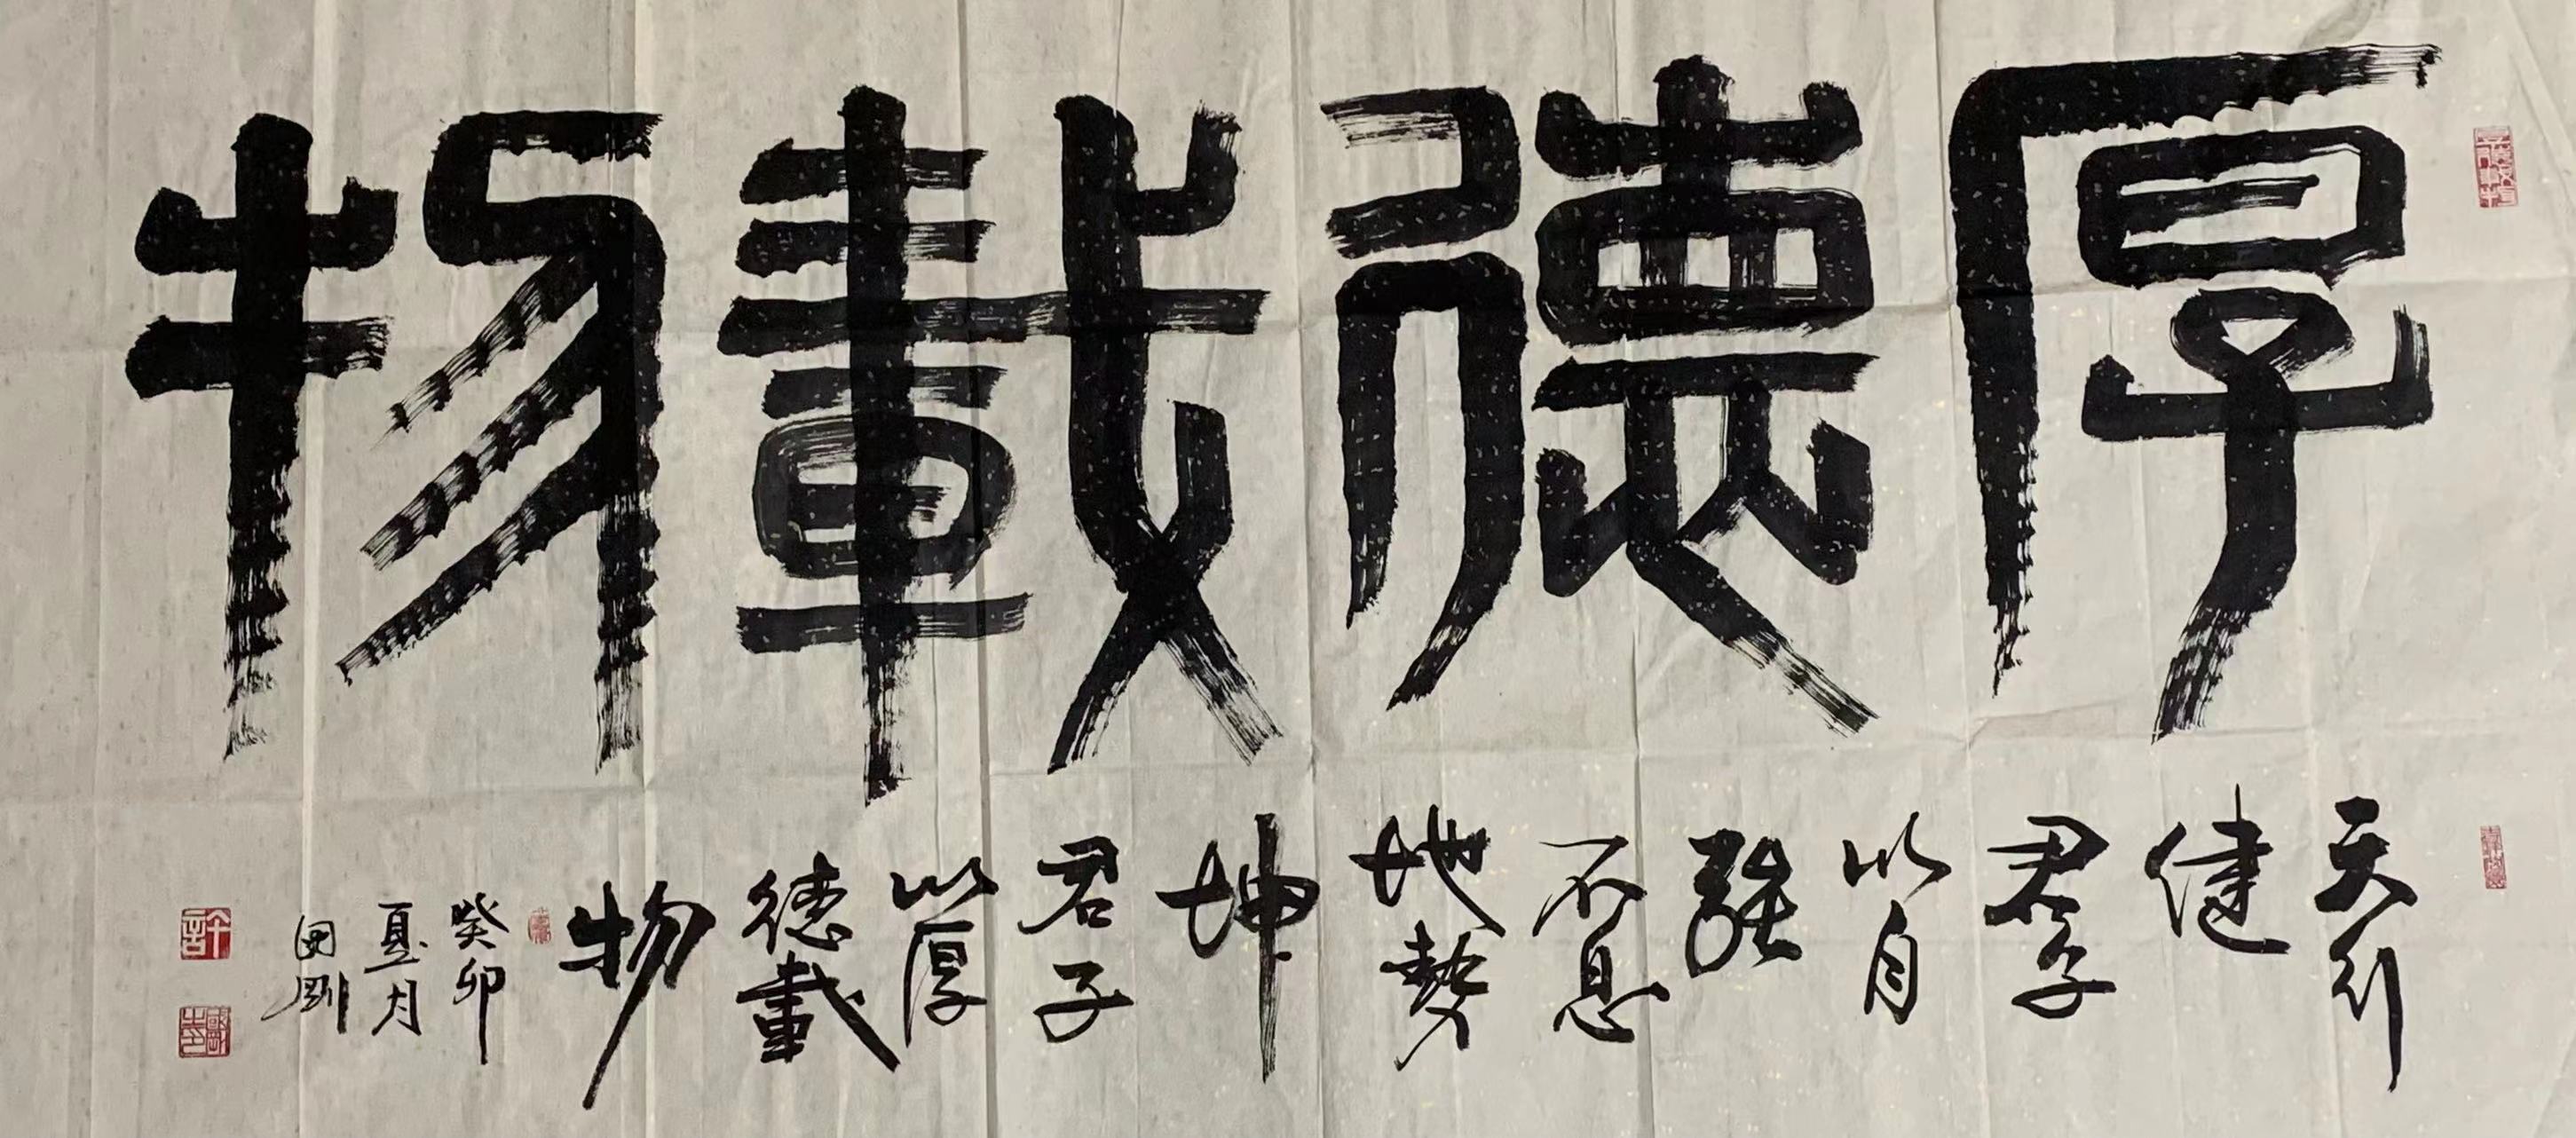 厚德載物
天行
健
君子
以自
強
不息
地勢
坤
君子
以厚
德載
物
癸卯
夏月
国刚
許